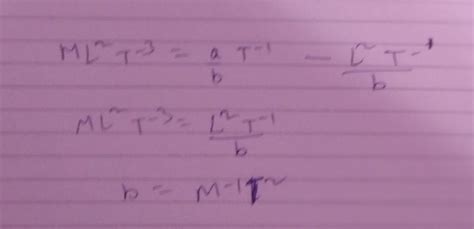 ML² T⁻³ = a/b T⁻¹ − L² T⁻¹/b
ML² T⁻³ = L² T⁻¹/b
b = M⁻¹T²